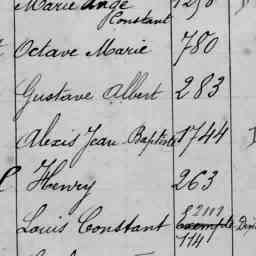 Marie Ange
Constant
Octave Marie 780
Gustave Albert 283
Alexis Jean-Baptiste 1744
Henry 263
Louis Constant
exempté
114